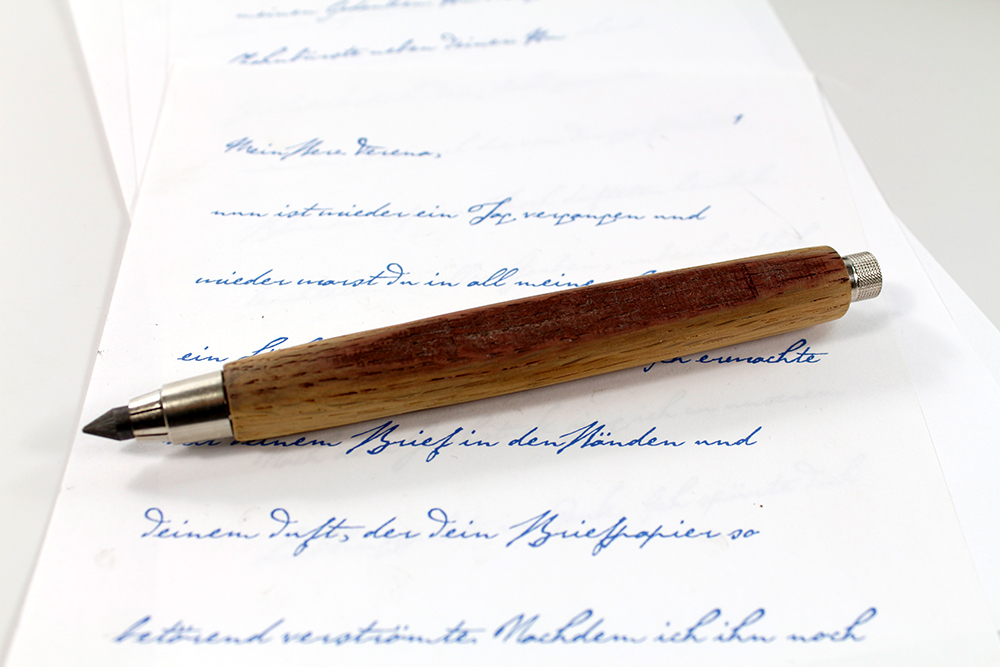 meinen Gedanken
Zahnbürste neben deiner
1
Mein Herz Verena,
nun ist wieder ein Tag vergangen und
wieder warst du in all meine
ein erwachte
deinem Brief in den Händen und
deinem Duft, der dein Briefpapier so
betörend verströmte. Nachdem ich ihn noch